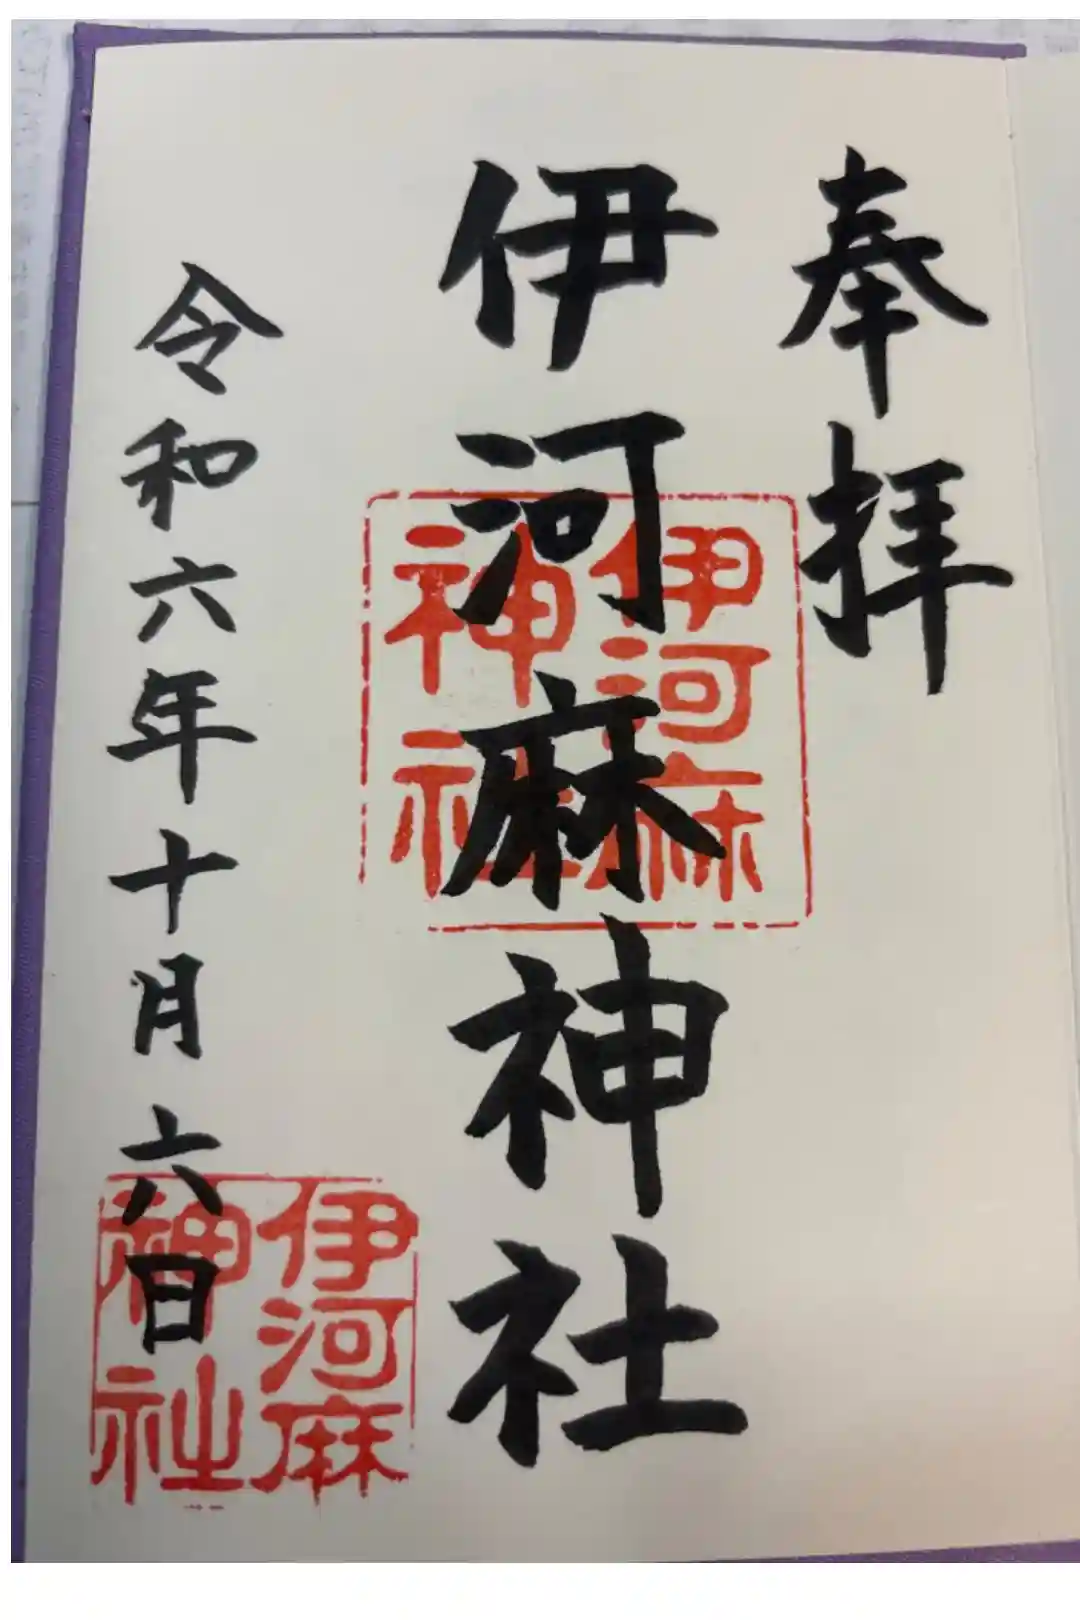 奉拝
伊河麻神社
伊河麻
神社
令和六年十月六日
伊河麻
神社